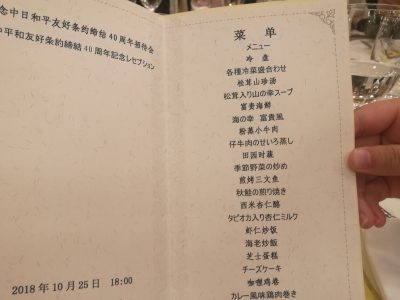 念中日和平友好条約締結40周年招待会
中平和友好条約締結40周年記念レセプション
2018年10月25日 18:00
菜 单
メニュー
冷 盘
各種冷菜盛合わせ
松茸山珍汤
松茸入り山の幸スープ
富贵海鲜
海の幸 富貴風
粉蒸小牛肉
仔牛肉のせいろ蒸し
田园时蔬
季節野菜の炒め
煎烤三文鱼
秋鮭の煎り焼き
西米杏仁酪
タピオカ入り杏仁ミルク
虾仁炒饭
海老炒飯
芝士蛋糕
チーズケーキ
咖喱鸡卷
カレー風味鶏肉巻き